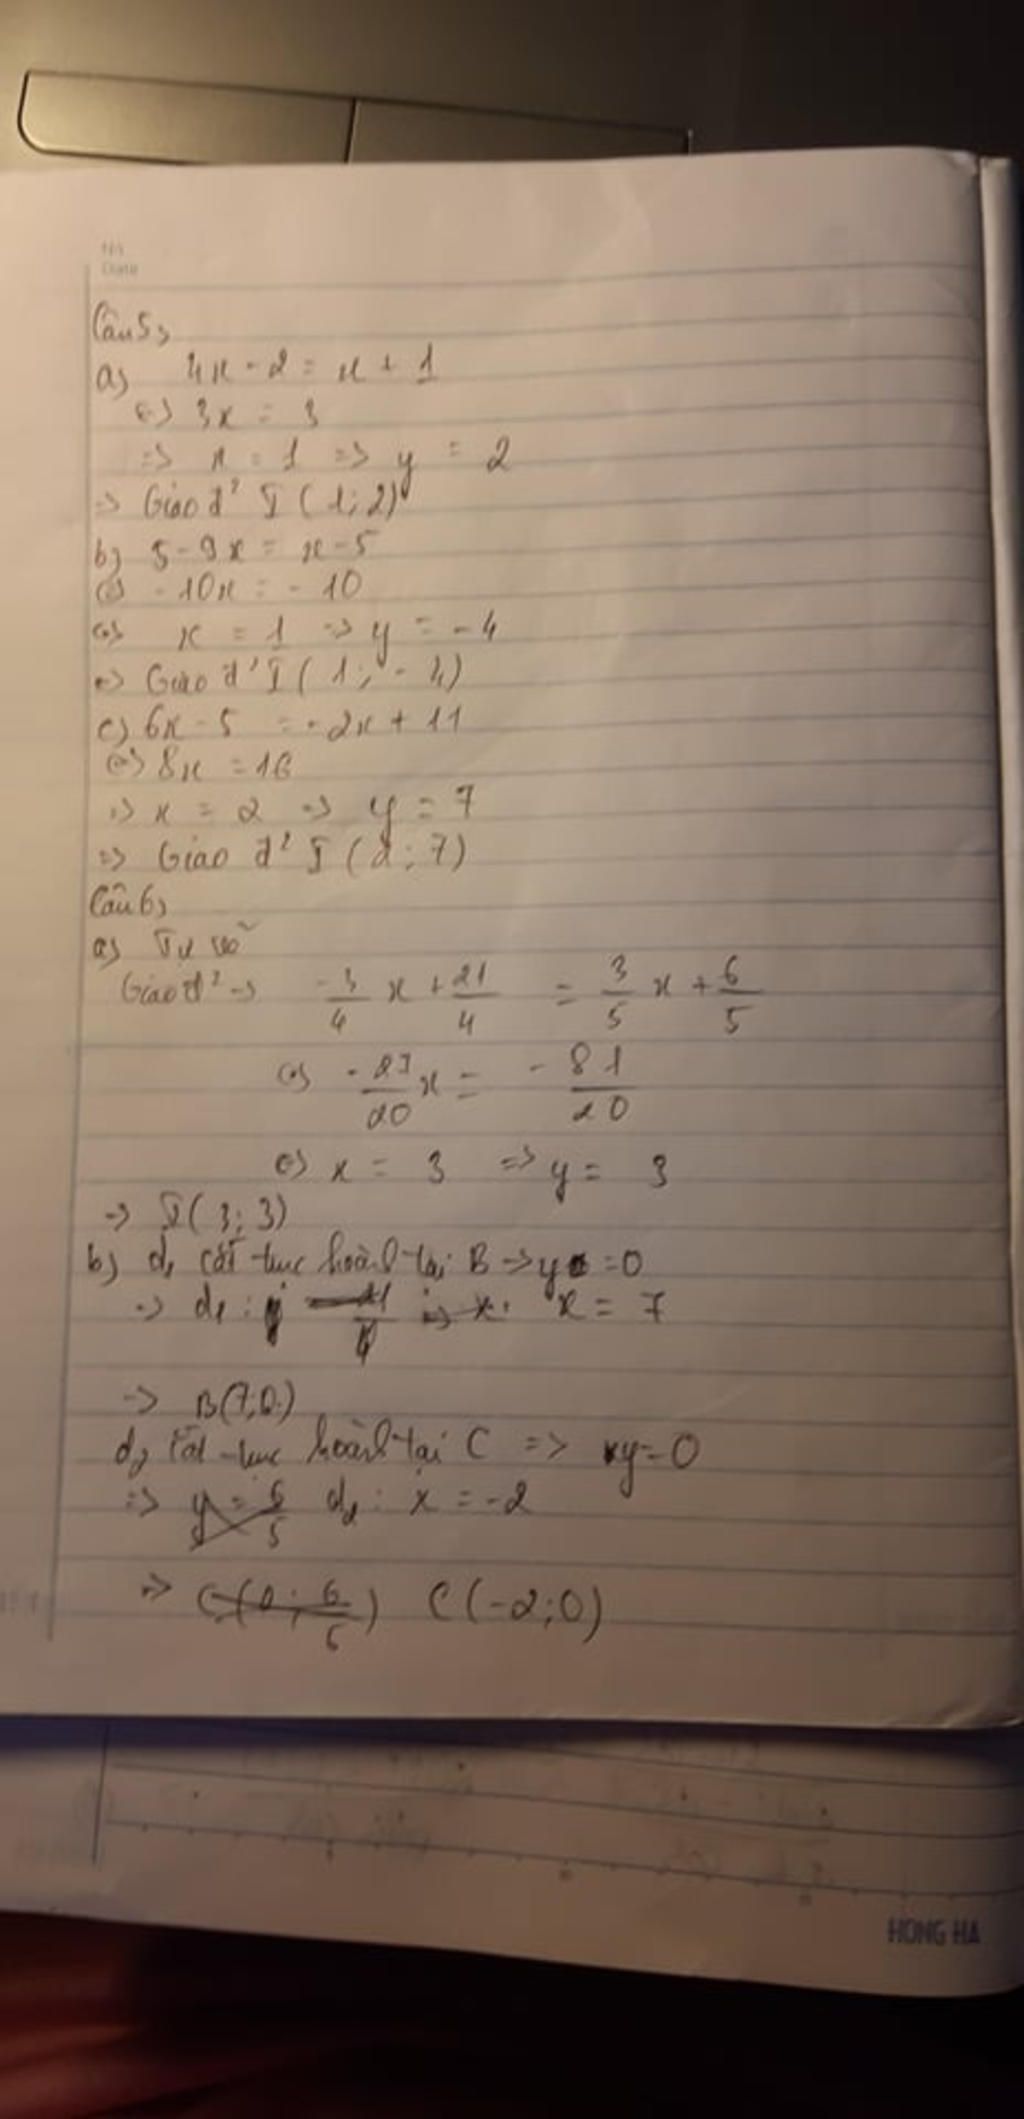 No
Date
Câu 5,
a, 4x - 2 = x + 1
<=> 3x = 3
=> x = 1 => y = 2
=> Giao đ² I (1; 2)
b, 5 - 9x = x - 5
<=> -10x = -10
<=> x = 1 => y = -4
=> Giao đ² I (1; -4)
c, 6x - 5 = -2x + 11
<=> 8x = 16
=> x = 2 => y = 7
=> Giao đ² I (2; 7)
Câu 6,
a, Tự vẽ
Giao đ² -> -3/4 x + 21/4 = 3/5 x + 6/5
<=> -27/20 x = -81/20
<=> x = 3 => y = 3
-> I (3; 3)
b, d₁ cắt trục hoành tại B -> y = 0
-> d₁ : x = 7
-> B(7;0)
d₂ cắt trục hoành tại C => y = 0
=> y = 6/5 d₂ : x = -2
=> C(0; 6/5) C(-2;0)
HONG HA